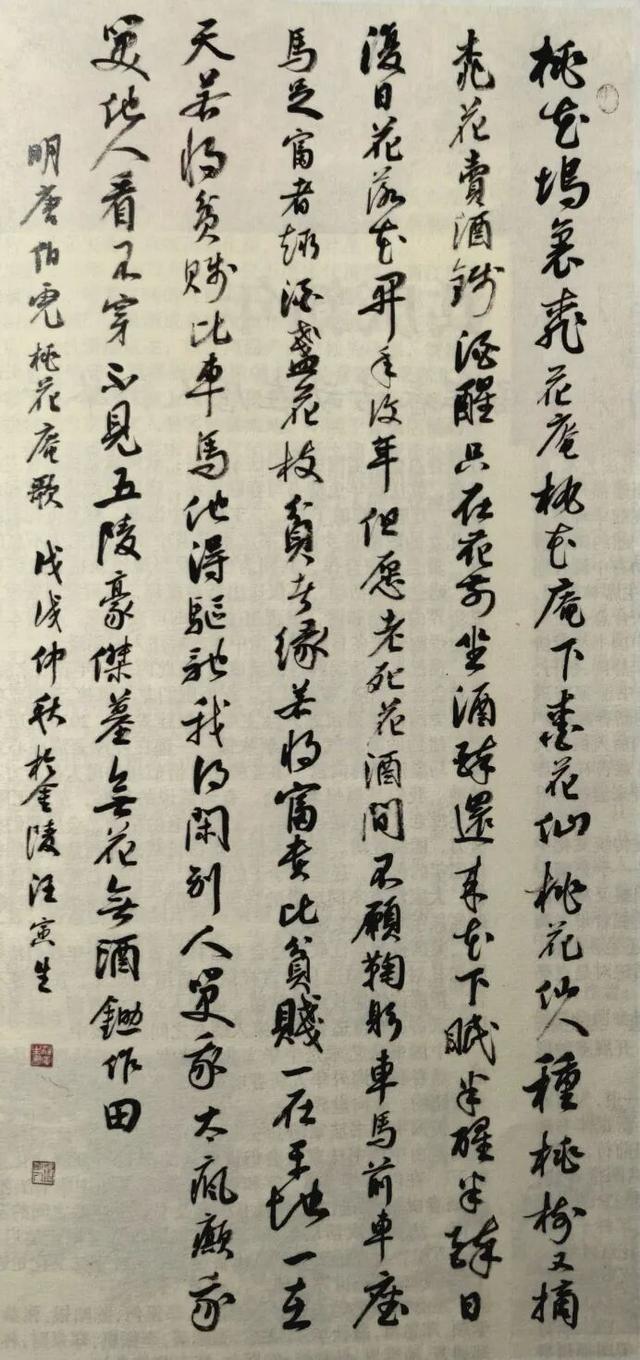 桃花塢裏桃花庵桃花庵下桃花仙桃花仙人種桃樹又摘
桃花賣酒錢酒醒只在花前坐酒醉還來花下眠半醒半醉日
復日花落花開年復年但愿老死花酒間不願鞠躬車馬前車塵
馬足富者趣酒盞花枝貧者緣若將富貴比貧賤一在平地一在
天若將貧賤比車馬他得驅馳我得閑別人笑我太瘋癲我
笑他人看不穿不見五陵豪傑墓無花無酒鋤作田
明唐伯虎桃花庵歌 戊戌仲秋於金陵汪寅生